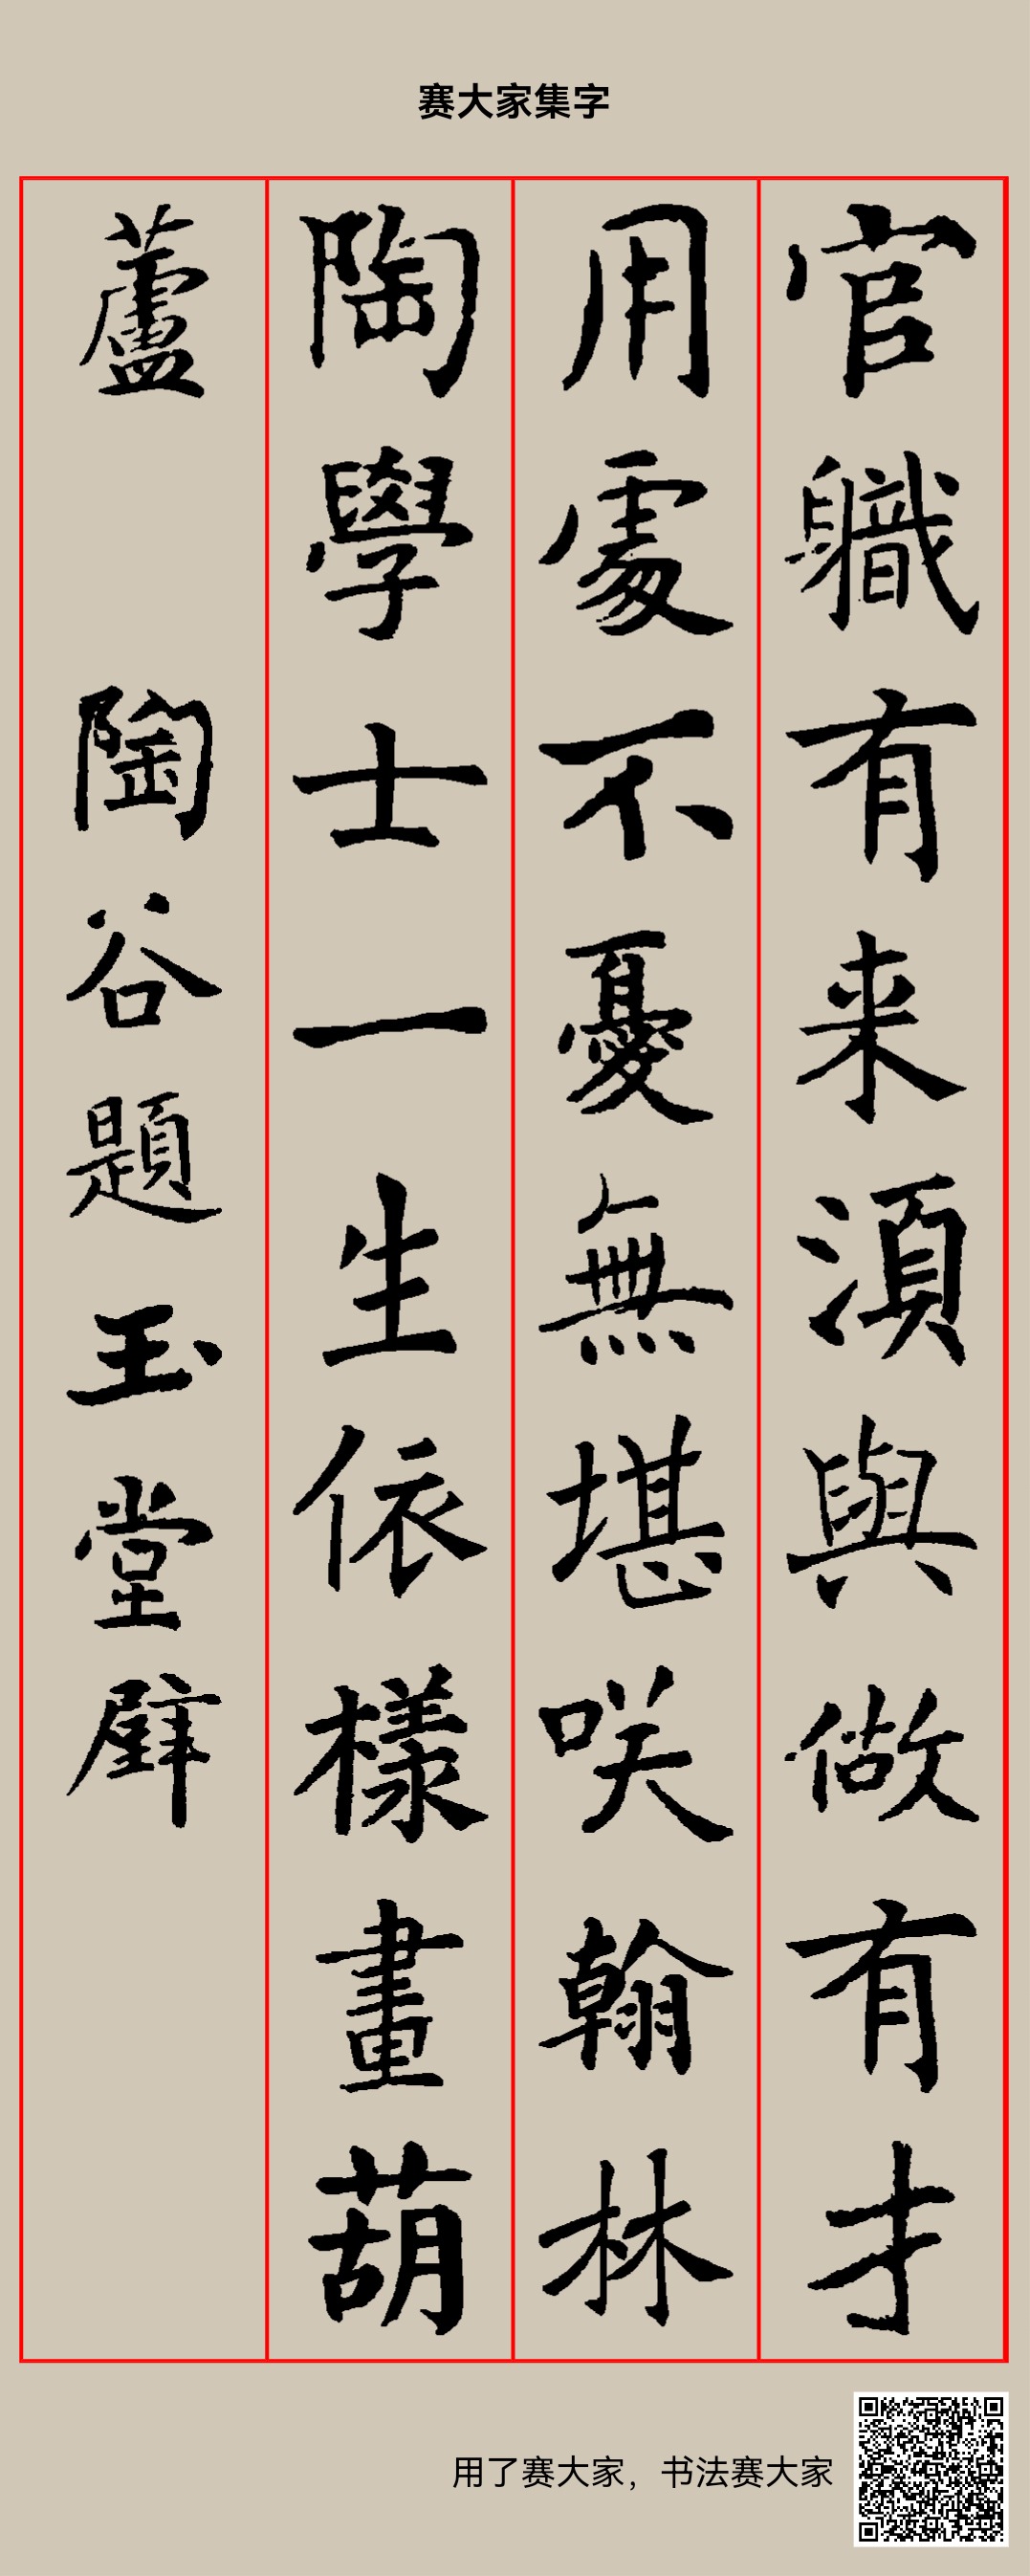 赛大家集字
官職有来須與做有才
用處不憂無堪咲翰林
陶學士一生依樣畫葫
蘆 陶谷題玉堂壁
用了赛大家，书法赛大家